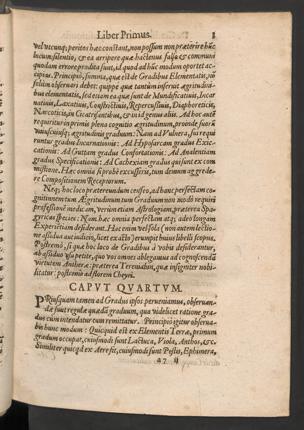 Liber Primus. 3
vel utcunq; peritos hæc constant, non possum non præterire hûc
in cum silentio, & ea arripere quæ hactenus falso & communi
quodam errore prodita sunt, id quod ad hûc modum oportet ac-
cipias. Principiò, summa, quæ est de Gradibus Elementatis, nî
fallor observari debet: quippe quæ tantùm inservit ægritudini-
bus elementatis, sed etiam ea quæ sunt de Mundificativis, Incar-
nativis, Laxativis, Constrictivis, Repercussivis, Diaphoreticis,
Narcoticis, in Cicatrisantibus, & in id genus aliis. Ad hoc autê
requiritur in primis plena cognitio ægritudinum, proinde fuæ
unicuiusq; ægritudinis gradum: Nam ad Vulnera, suos requi-
runtur gradus Incarnationis: Ad Hyposarcam gradus Exic-
cationis: Ad Guttam gradus Confortationis: Ad Analentiam
gradus Specificationis: Ad Cachexiam gradus qui sunt ex com
mistione. Hæc omnia si probè excusseris, tum demum aggrede-
re Compositionem Receptorum.
Neq; hoc loco prætereundum censeo, ad hanc perfectam co-
gnitionem tum Ægritudinum tum Graduum non modò requiri
professionê medicam, verùm etiam Astrologiam, præterea Spa-
gyricas species: Nam hæc omnia perfectam atq; adeò longam
Experientiam desiderant. Hæc enim vel sola (non autem lectio-
ne assidua aut iudiciis, licet exacto) erumpit huius libelli scopus.
Postremò, si qua hoc loco de Gradibus à vobis desiderantur,
ab assiduo usu petite, quò vos omnes ablegamus ad cognoscendâ
virtutem Antheræ: præterea Tereniabin, quæ insigniter nobi-
litatur: postremò ad florem Cheyri.
CAPUT QUARTUM.
PRiusquam tamen ad Gradus ipsos perveniamus, observan-
dæ sunt regulæ quædã gradum, qua videlicet ratione gra-
dus cùm intendatur cùm remittatur. Principiò igitur observa-
bis hunc modum: Quicquid est ex Elementis Terræ, primum
gradum occupat, cuiusmodi sunt Lactuca, Viola, Anthos, &c.
Similiter quicq̃d ex Aere fit, cuiusmodi sunt Pestis, Ephimera,